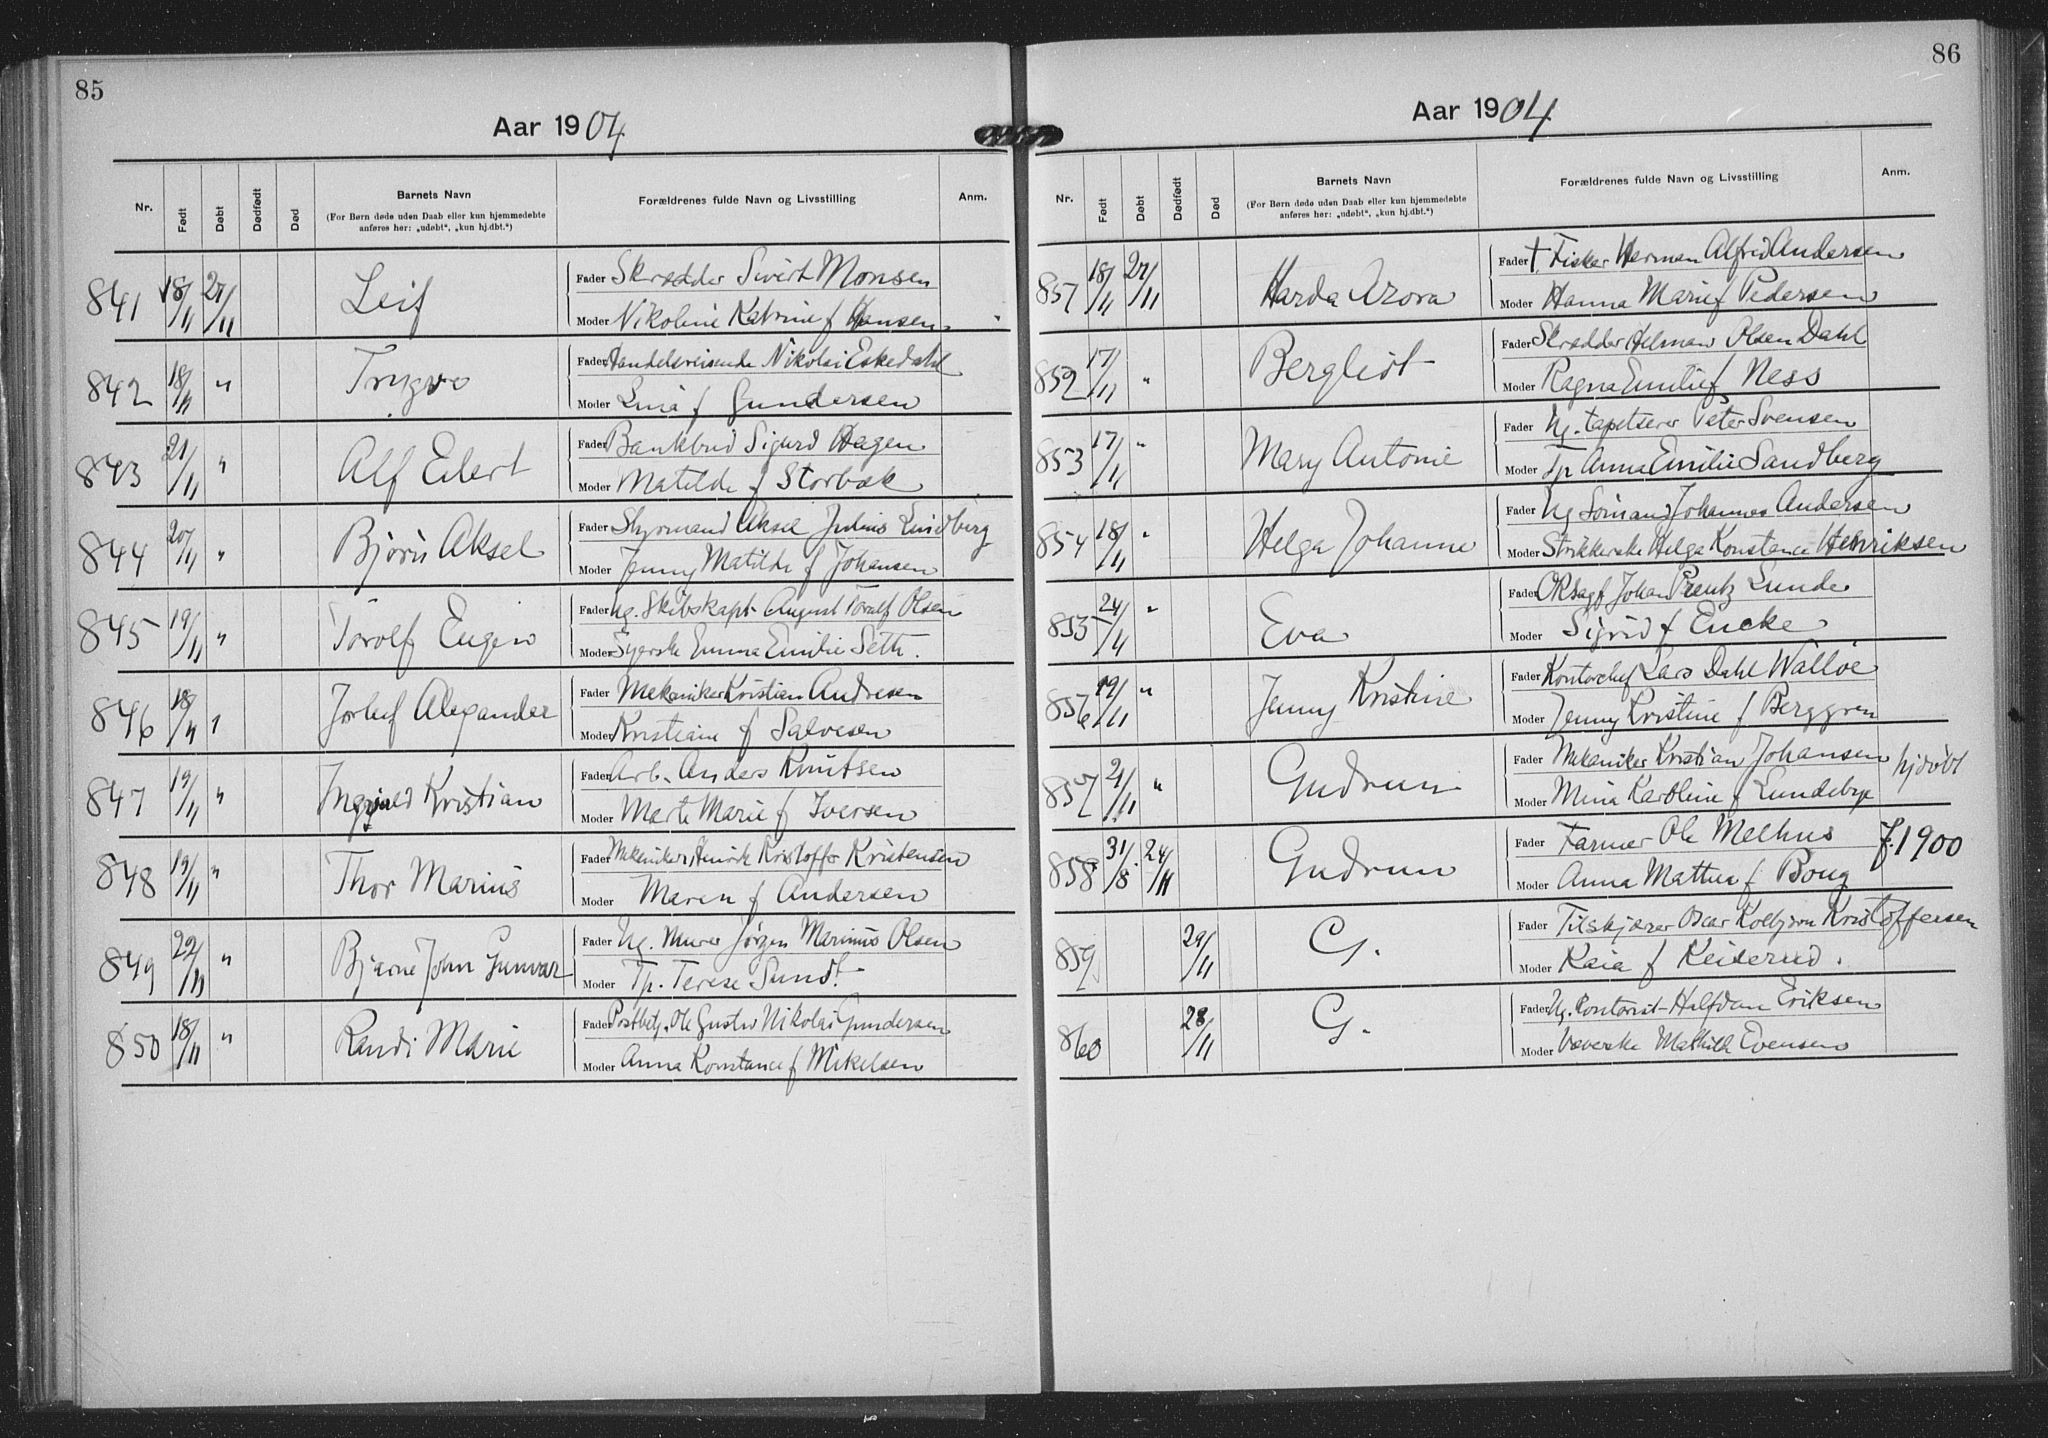 85
Aar 1904.
Nr. Født Døbt Dødfødt Død Barnets Navn Forældrenes fulde Navn og Livsstilling Anm.
(For Børn døde uden Daab eller kun hjemmedøbte
anføres her: „udøbt“, „kun hj.dbt.“)
841 18/11 27/11 Leif Fader Skrædder Sivert Monsen
Moder Nikoline Katrine f Hansen
842 18/11 " Trygve Fader Handelsreisende Nikolai Eskedahl
Moder Lina f Gundersen
843 21/11 " Alf Eilert Fader Bankbud Sigurd Hagen
Moder Matilde f Storbæk
844 20/11 " Bjørn Aksel Fader Styrmand Aksel Julius Lindberg
Moder Jenny Matilde f Johansen
845 19/11 " Torolf Eugen Fader Ug. Skibskapt. August Toralf Olsen
Moder Syerske Emma Emilie Seth.
846 18/11 Alexander Fader Mekaniker Kristian Andresen
Moder Kristiane f Salvesen
847 19/11 " Ingvald Kristian Fader Arb. Anders Knutsen
Moder Marte Marie f Iversen
848 19/11 " Thor Marius Fader Mekaniker Henrik Kristoffer Kristensen
Moder Maren f Andersen
849 22/11 " Bjarne John Gunvar Fader Ug. Murer Jørgen Marinius Olsen
Moder Tp. Terese Sundt
850 18/11 " Randi Marie Fader Postbetj. Ole Gustav Nikolai Gundersen
Moder Anna Konstance f Mikelsen
86
Aar 1904.
Nr. Født Døbt Dødfødt Død Barnets Navn Forældrenes fulde Navn og Livsstilling Anm.
(For Børn døde uden Daab eller kun hjemmedøbte
anføres her: „udøbt“, „kun hj.dbt.“)
851 18/11 27/11 Harda Arora Fader † Fisker Herman Alfred Andersen
Moder Hanna Marie f Pedersen
852 17/11 " Bergliot Fader Skrædder Helmar Olsen Dahl
Moder Ragna Emilie f Ness
853 17/11 " Mary Antonie Fader Ug. tapetserer Peter Svensen
Moder Tp Anna Emilie Sandberg
854 18/11 " Helga Johanne Fader Ug Sømand Johannes Andersen
Moder Strikkerske Helga Konstance Henriksen
855 24/11 " Eva Fader ORsagf Johan Prentz Lunde
Moder Sigrid f Encke
856 19/11 " Jenny Kristine Fader Kontorchef Lars Dahl Walløe
Moder Jenny Kristine f Berggren
857 21/11 " Gudrun Fader Mekaniker Kristian Johansen hjdøbt
Moder Mina Karoline f Lundebye
858 31/8 24/11 Gudrun Fader Farmer Ole Melhus f. 1900
Moder Anna Mattea f Boug
859 29/11 G. Fader Tilskjærer Oscar Kolbjørn Kristoffersen
Moder Kaia f Keiserud.
860 28/11 G. Fader Ug. Kontorist Halfdan Eriksen
Moder Væverske Mathilde Evensen